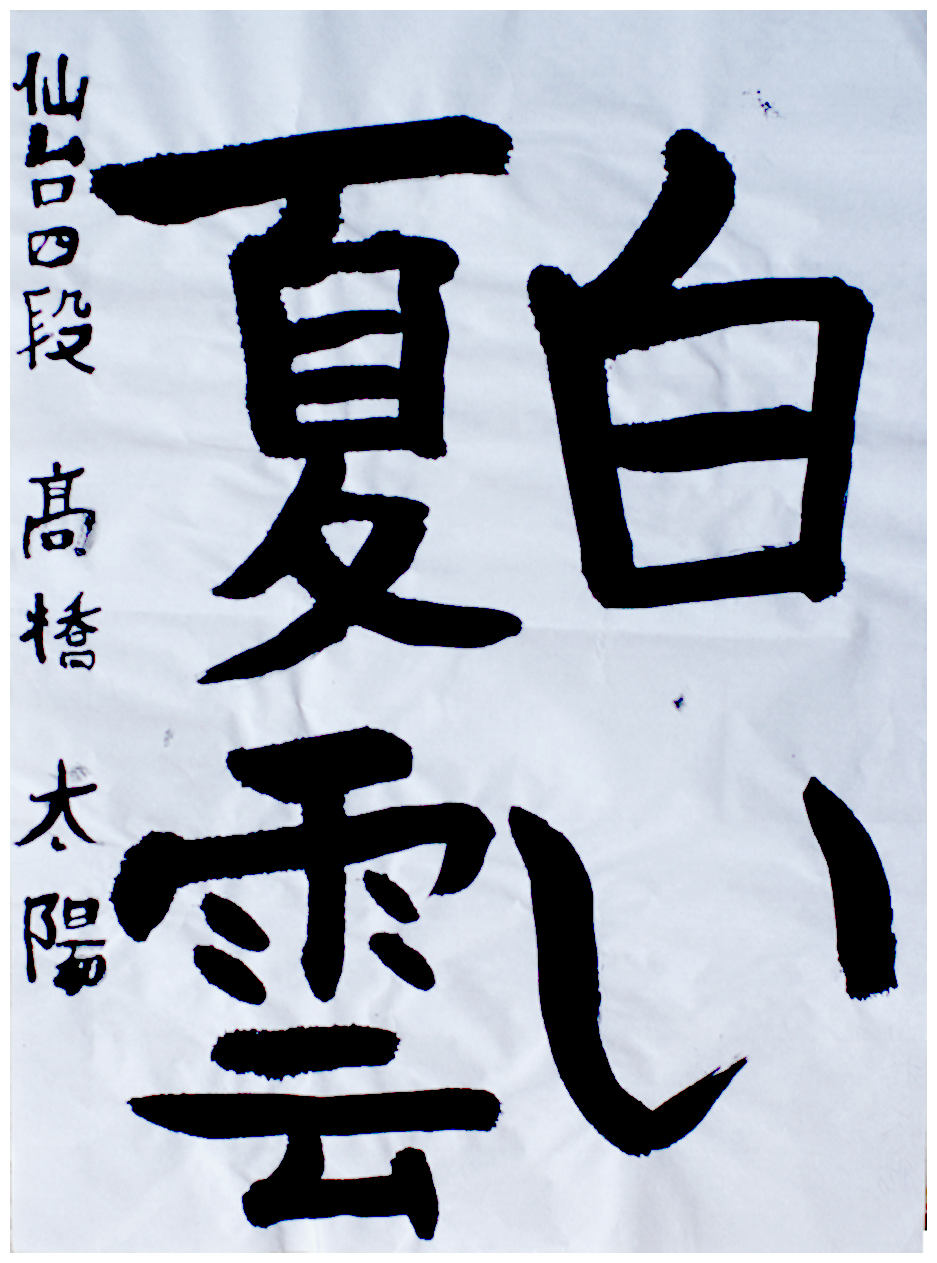 白い
夏雲
仙台四段 髙橋 太陽